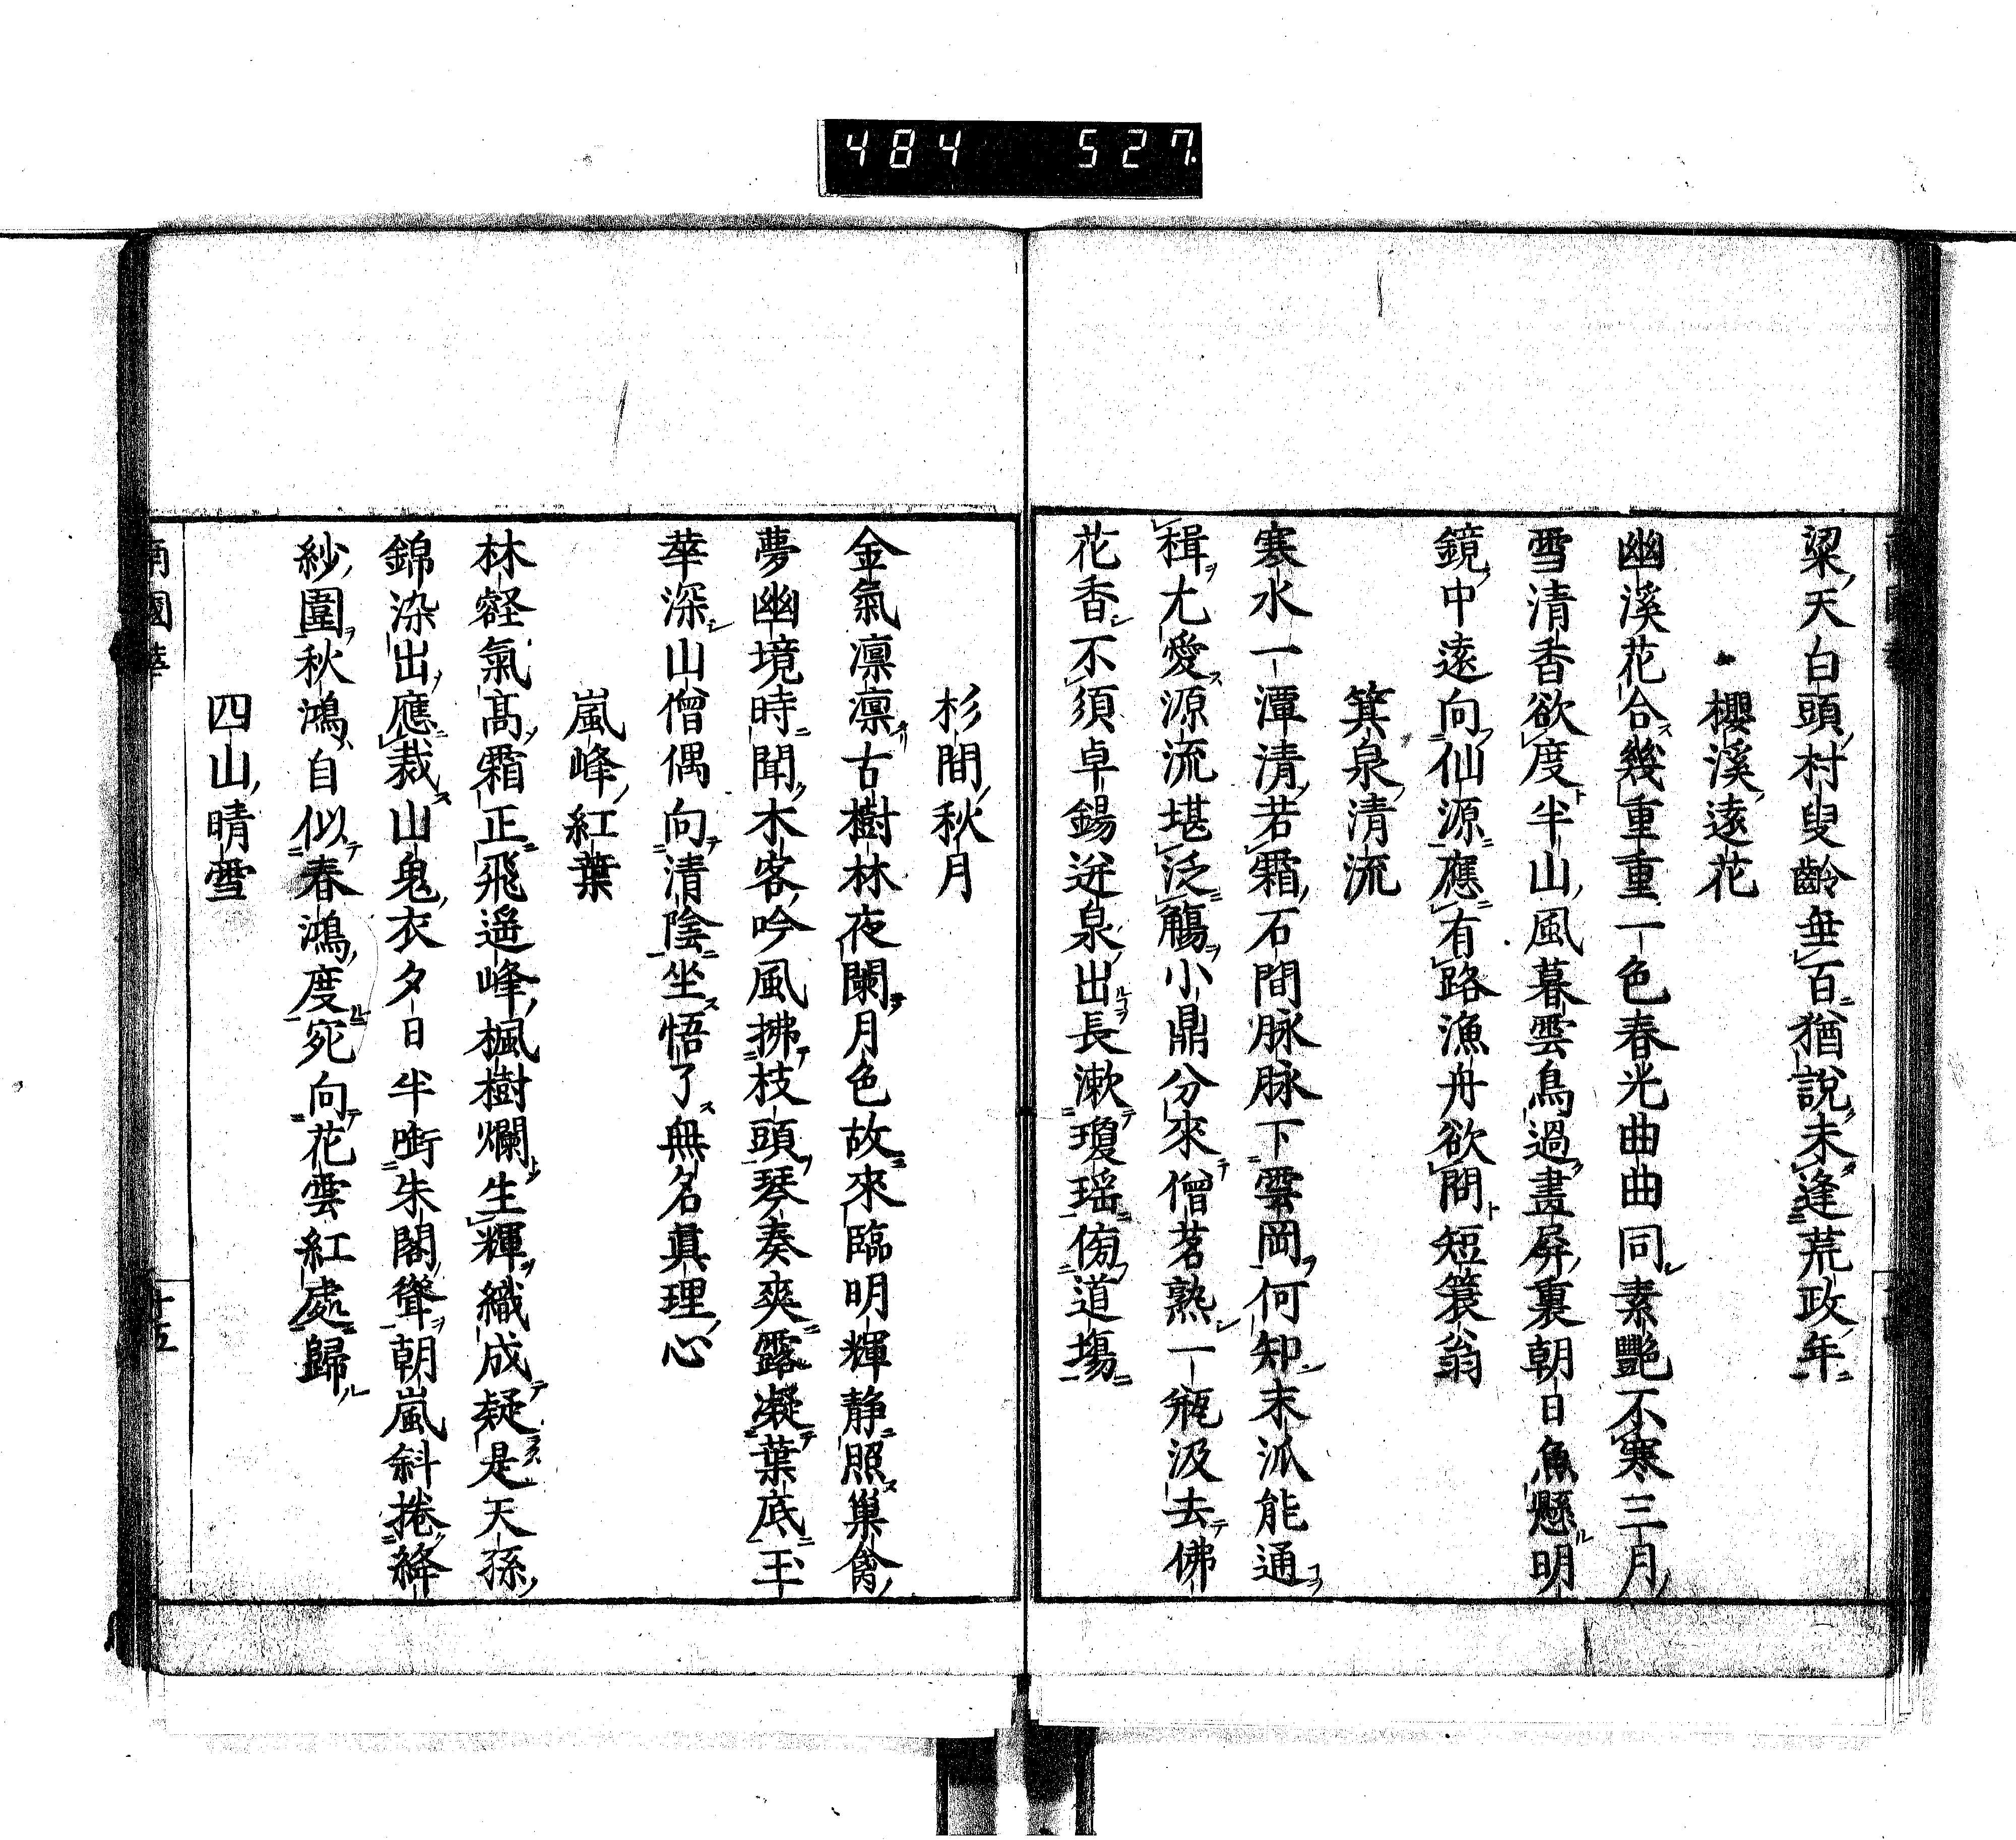 484 527.
粱天白頭村叟齡垂百猶說未逢荒政年
櫻溪遠花
幽溪花合幾重重一色春光曲曲同素艷不寒三月
雪清香欲度半山風暮雲鳥過畫屏裏朝日魚懸明
鏡中遠向仙源應有路漁舟欲問短簑翁
箕泉清流
寒水一潭清若霜石間脉脉下雲岡何知末派能通
楫尤愛源流堪泛觴小鼎分來僧茗熟一瓶汲去佛
花香不須卓錫迸泉出長漱瓊瑶傍道場
杉間秋月
金氣凛凛古樹林夜闌月色故來臨明輝静照巢禽
夢幽境時聞木客吟風拂枝頭琴奏爽露凝葉底玉
華深山僧偶向清陰坐悟了無名眞理心
嵐峰紅葉
林壑氣高霜正飛遥峰楓樹爛生輝織成疑是天孫
錦染出應裁山鬼衣夕日半銜朱閣聳朝嵐斜捲絳
紗圍秋鴻自似春鴻度宛向花雲紅處歸
四山晴雪
南國華
十五